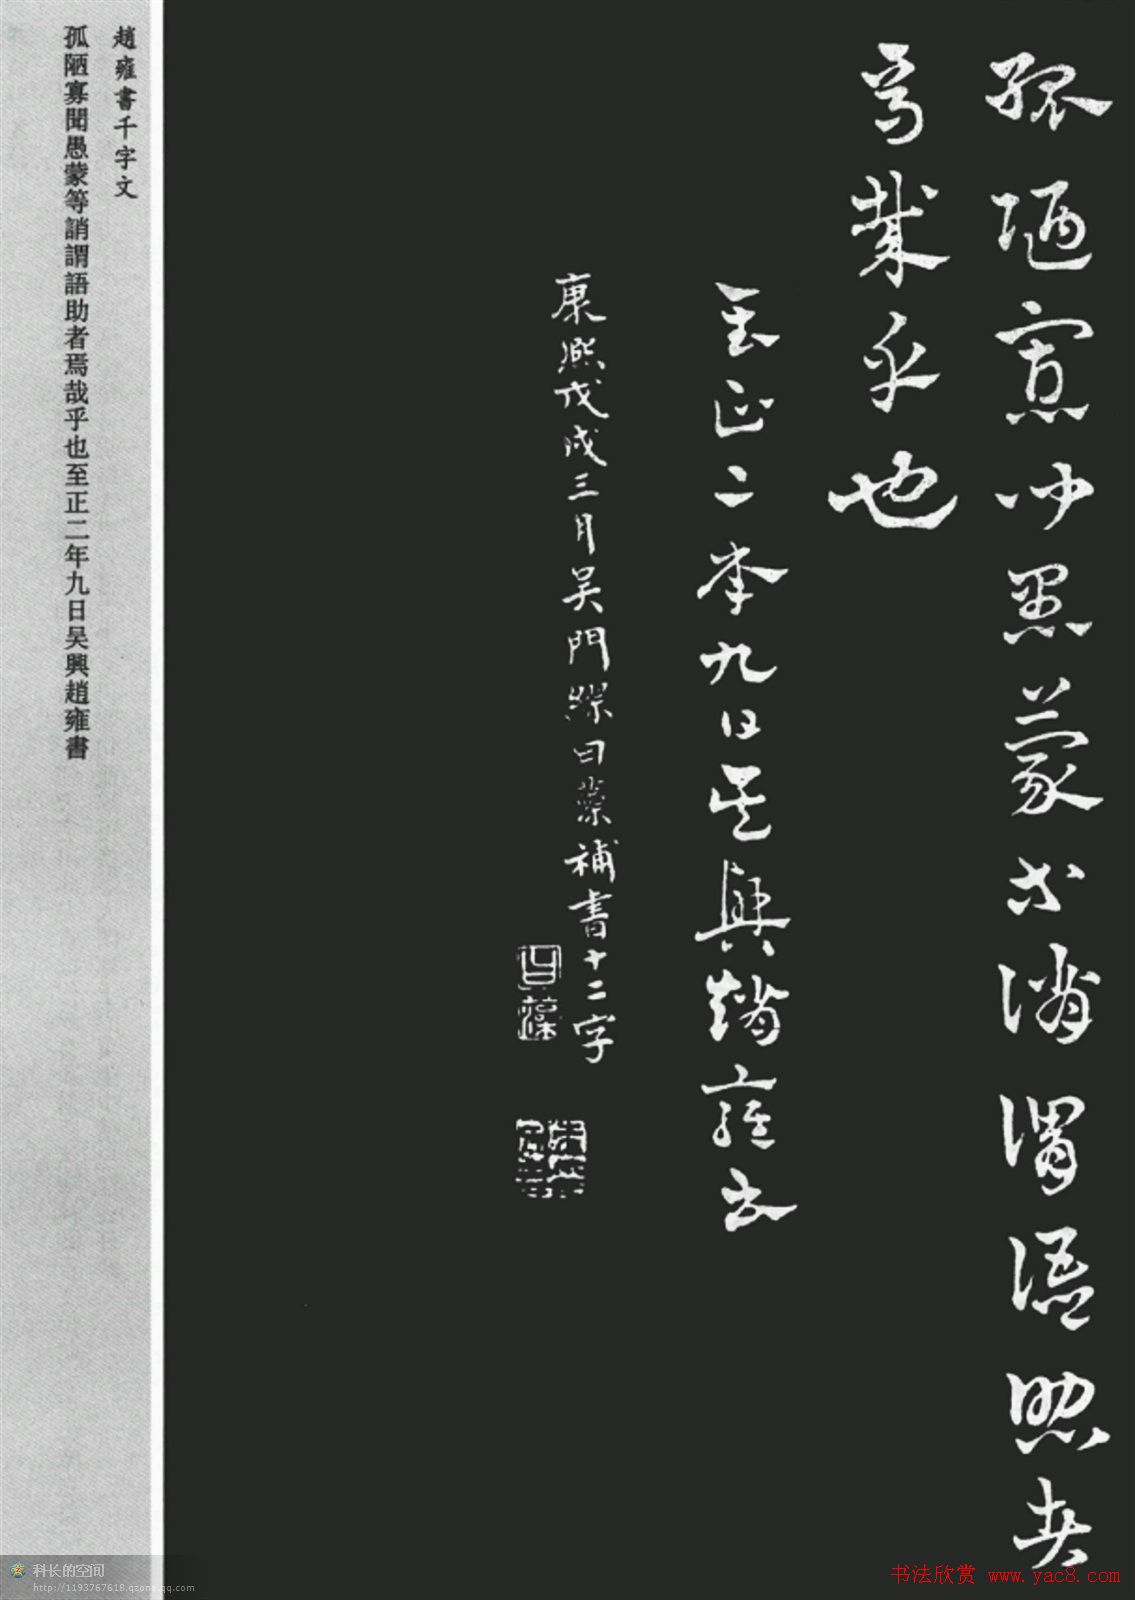 孤陋寡聞愚蒙等誚謂語助者
焉哉乎也
至正二年九日吴興趙雍書
康熙戊戌三月吴門繆曰藻補書十二字
曰藻
趙雍書千字文
孤陋寡聞愚蒙等誚謂語助者焉哉乎也至正二年九日吴興趙雍書
科长的空间
http://1193767618.qzone.qq.com
书法欣赏 www.yac8.com